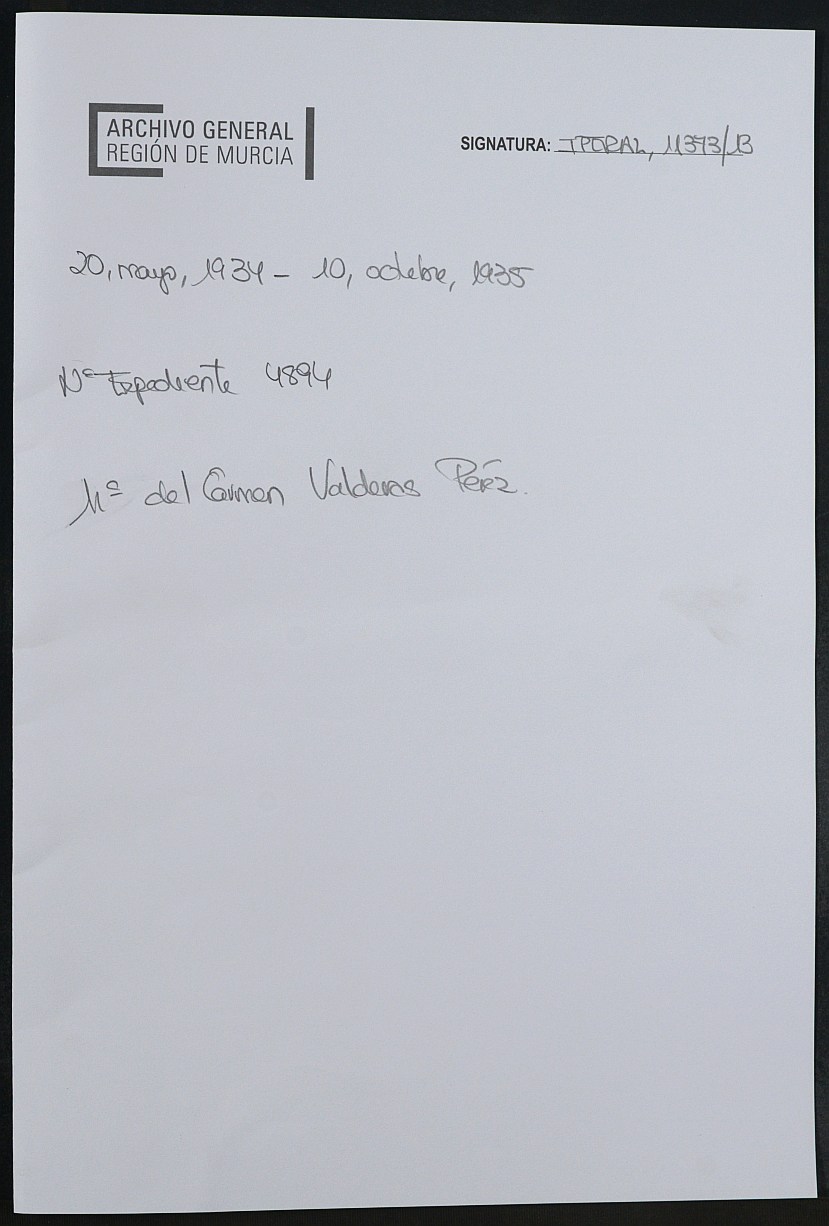 ARCHIVO GENERAL
REGIÓN DE MURCIA
SIGNATURA: IPORAL, 11373/13
20, mayo, 1934 - 10, octubre, 1935
Nº Expediente 4894
Mª del Carmen Valderas Pérez.